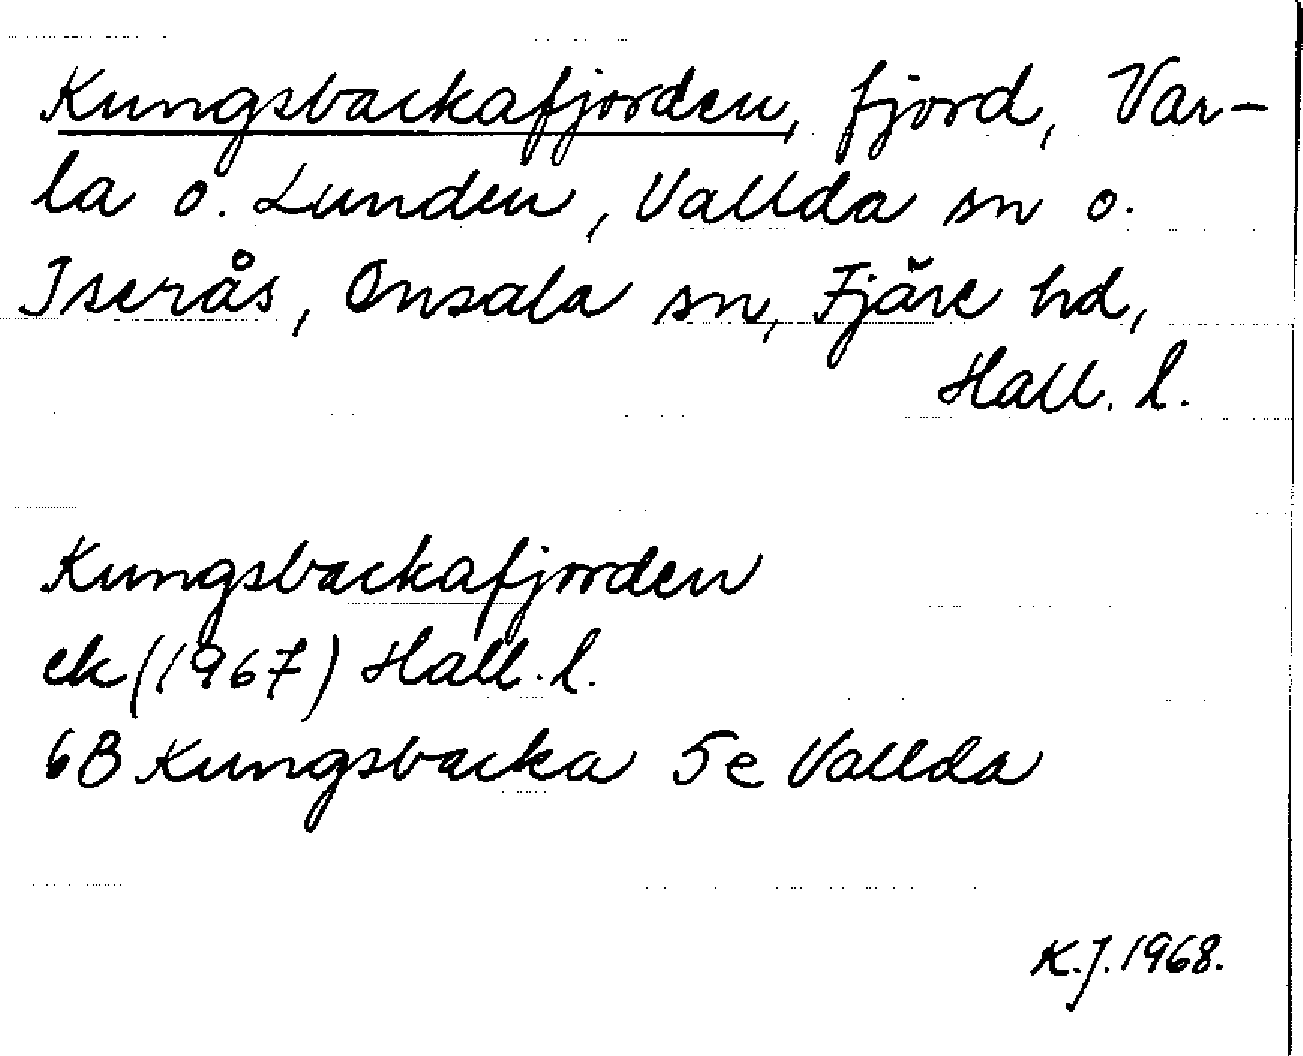 Kungsbackafjorden, fjord, Var-
la o. Lunden, Vallda sn o.
Iserås, Onsala sn, Fjäre hd,
Hall. l.
Kungsbackafjorden
ek (1967) Hall. l.
6B Kungsbacka 5e Vallda
K.J. 1968.